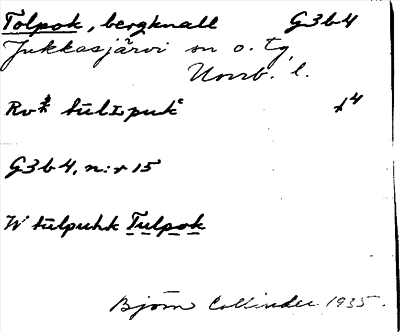 Tolpok, bergknall G3b4
Jukkasjärvi sn o. tg
Norrb. l.
Rv tŭlLpuk x4
G3b4, n:r 15
W tŭlpuhk Tulpok
Björn Collinder 1935.